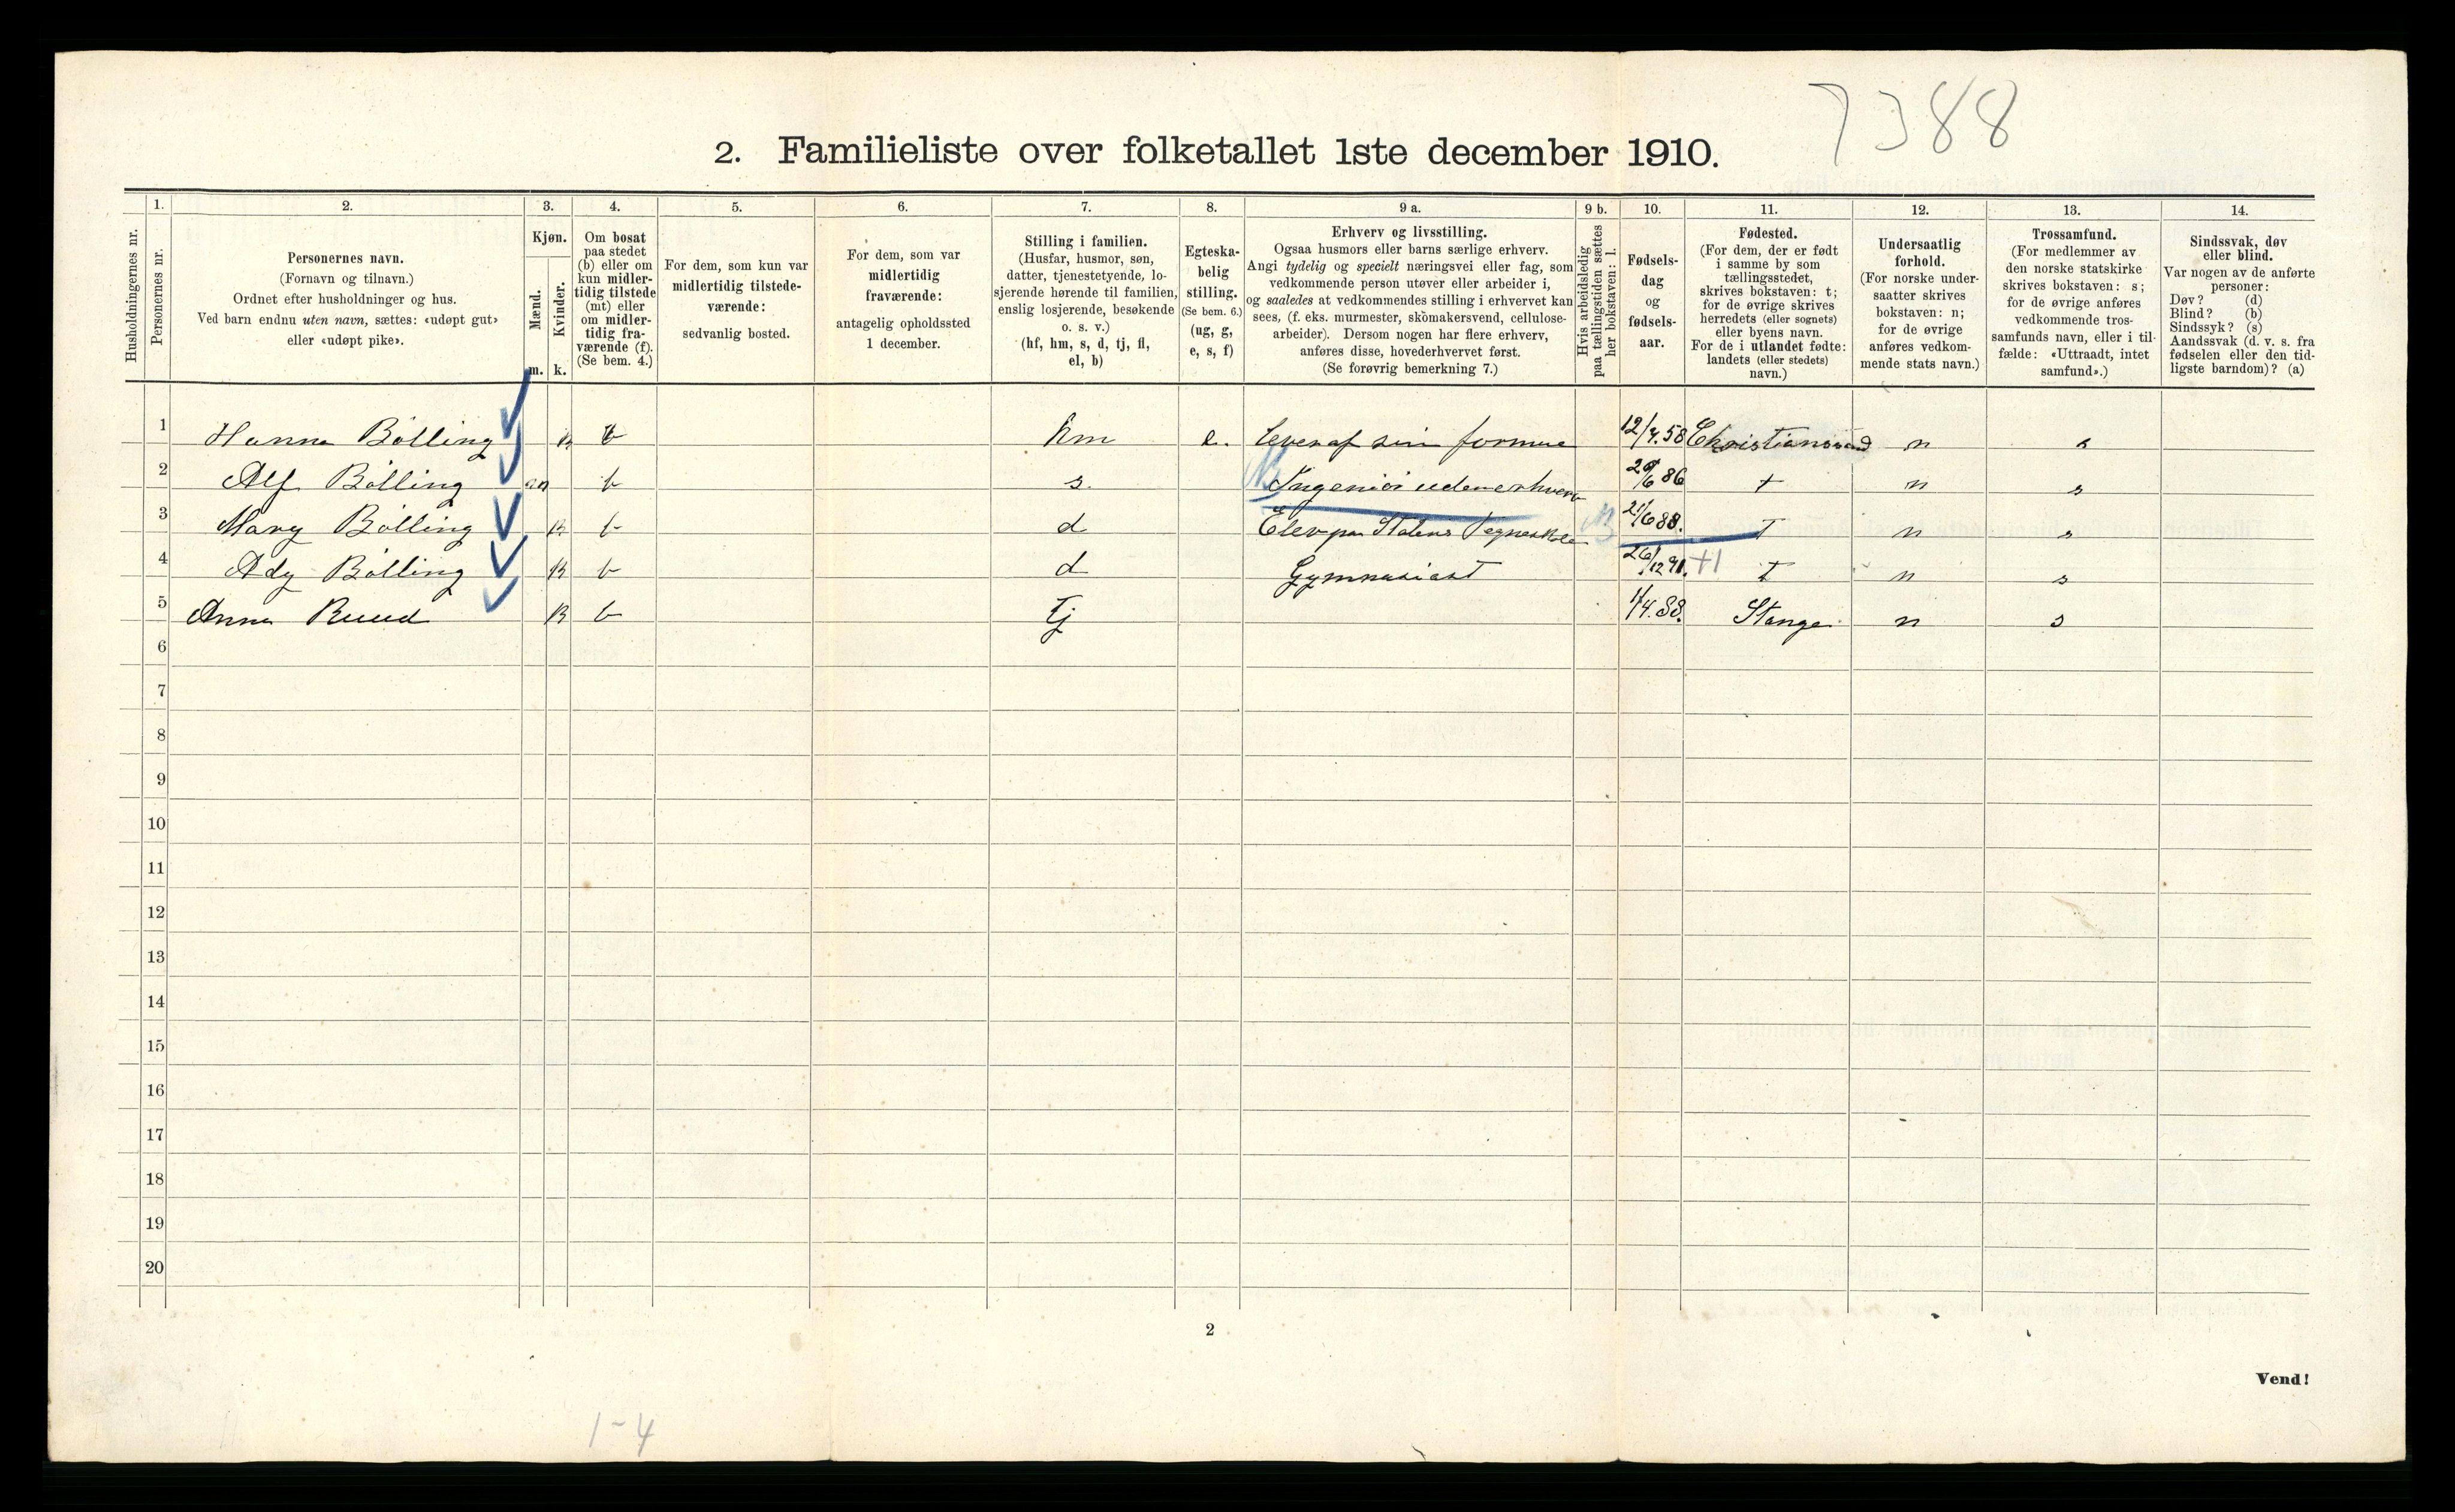 7388
2. Familieliste over folketallet 1ste december 1910.
Husholdningernes nr.
1. Personernes nr.
2. Personernes navn.
(Fornavn og tilnavn.)
Ordnet efter husholdninger og hus.
Ved barn endnu uten navn, sættes: «udøpt gut»
eller «udøpt pike».
3. Kjøn.
Mænd. Kvinder.
m. k.
4. Om bosat
paa stedet
(b) eller om
kun midler-
tidig tilstede
(mt) eller
om midler-
tidig fra-
værende (f).
(Se bem. 4.)
5. For dem, som kun var
midlertidig tilstede-
værende:
sedvanlig bosted.
6. For dem, som var
midlertidig
fraværende:
antagelig opholdssted
1 december.
7. Stilling i familien.
(Husfar, husmor, søn,
datter, tjenestetyende, lo-
sjerende hørende til familien,
enslig losjerende, besøkende
o. s. v.)
(hf, hm, s, d, tj, fl,
el, b)
8. Egteska-
belig
stilling.
(Se bem. 6.)
(ug, g,
e, s, f)
9 a. Erhverv og livsstilling.
Ogsaa husmors eller barns særlige erhverv.
Angi tydelig og specielt næringsvei eller fag, som
vedkommende person utøver eller arbeider i,
og saaledes at vedkommendes stilling i erhvervet kan
sees, (f. eks. murmester, skomakersvend, cellulose-
arbeider). Dersom nogen har flere erhverv,
anføres disse, hovederhvervet først.
(Se forøvrig bemerkning 7.)
9 b. Hvis arbeidsledig
paa tællingstiden sættes
her bokstaven: l.
10. Fødsels-
dag
og
fødsels-
aar.
11. Fødested.
(For dem, der er født
i samme by som
tællingsstedet,
skrives bokstaven: t;
for de øvrige skrives
herredets (eller sognets)
eller byens navn.
For de i utlandet fødte:
landets (eller stedets)
navn.)
12. Undersaatlig
forhold.
(For norske under-
saatter skrives
bokstaven: n;
for de øvrige
anføres vedkom-
mende stats navn.)
13. Trossamfund.
(For medlemmer av
den norske statskirke
skrives bokstaven: s;
for de øvrige anføres
vedkommende tros-
samfunds navn, eller i til-
fælde: «Uttraadt, intet
samfund».)
14. Sindssvak, døv
eller blind.
Var nogen av de anførte
personer:
Døv? (d)
Blind? (b)
Sindssyk? (s)
Aandssvak (d. v. s. fra
fødselen eller den tid-
ligste barndom)? (a)
1 Hanna Bölling k b hm e. lever af sin formue 12/4.58 Christianssand n s
2 Alf Bölling m b s. Ingeniör uden erhverv /6 86 t n s
3 Mary Bölling k b d Elev paa Statens Tegneskole 21/6 88. T n s
4 Ady Bölling k b d Gymnasiast 26/12 91. +1 T n s
5 Anna Ruud k b Tj 1/4.88. Stange n s
6
7
8
9
10
11
12
13
14
15
16
17
18
19
20
2
Vend!
1-4